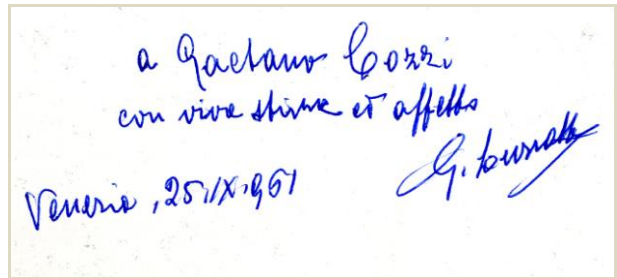 a Gaetano Cozzi
con viva stima ed affetto
G. Luzzatto
Venezia, 25.IX.961